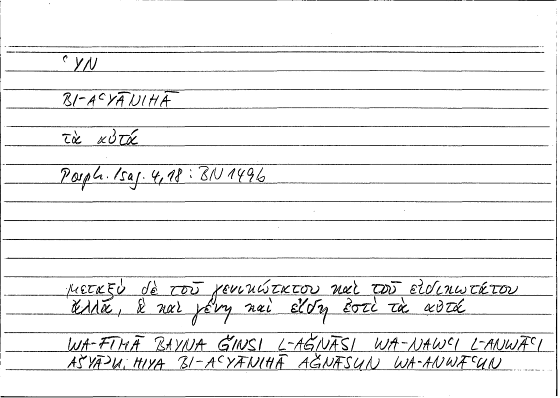 ʿYN
BI-AʿYĀNIHĀ
τὰ αὐτά
Porph. Isag. 4,18 : BN 149b
μεταξὺ δὲ τοῦ γενικωτάτου καὶ τοῦ εἰδικωτάτου
ἄλλα, ἃ καὶ γένη καὶ εἴδη ἐστὶ τὰ αὐτά
WA-FĪHĀ BAYNA ǦINSI L-AǦNĀSI WA-NAWʿI L-ANWĀʿI
AŠYĀʾU, HIYA BI-AʿYĀNIHĀ AǦNĀSUN WA-ANWĀʿUN